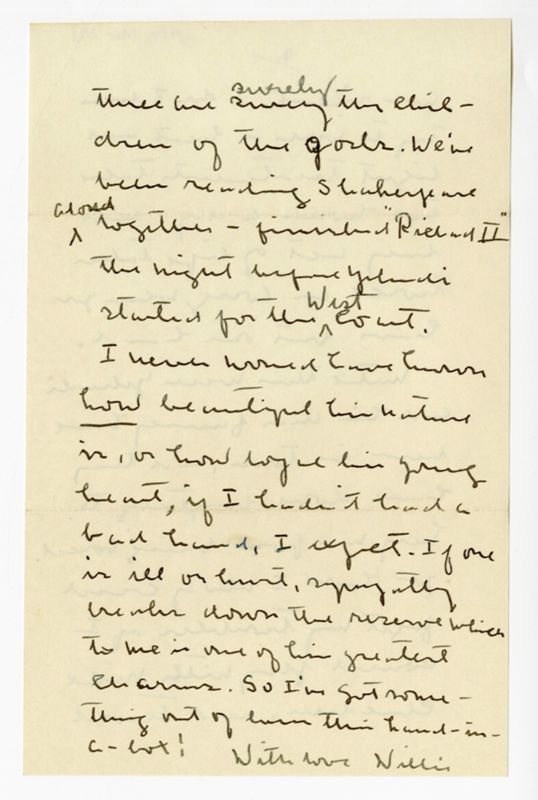 three are surely surely the chil-
dren of the gods. We've
been reading Shakespeare
aloud
together - finished "Richard II"
the night before Yehudi
started for the West Coast.
I never would have known
how beautiful his nature
is, or how loyal his young
heart, if I hadn't had a
bad hand, I expect. If one
is ill or hurt, sympathy
breaks down the reserve which
to me is one of his greatest
charms. So I've got some-
thing out of even this hand-in-
a-box! With love Willie